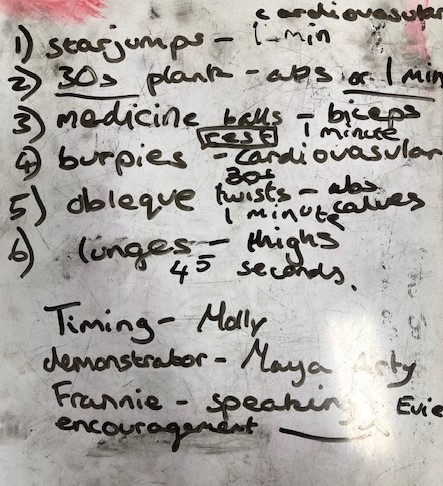 cardiovascular
1) starjumps - 1 min
2) 30s plank - abs or 1 min
3) medicine balls - biceps
rest 1 minute
4) burpies - cardiovasular
30s
5) obleque twists - abs
1 minute calves
6) lunges - thighs
45 seconds.
Timing - Molly
demonstrator - Maya Arty
Frannie - speaking Evie
encouragement